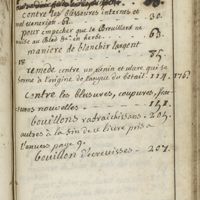 contre les blessures internes et
mal venerien. 62. 30.
pour empecher que le Brouillard ne
nuise au Bled en herbe. 63.
maniere de blanchir l'argent
85.
remede contre un venin et ulcere qui se
forme à l'origine de l'anque du betail. 114. 176.
Contre les blessures, coupures, frac-
tures nouvelles. 152.
bouillons rafraichissans. 205.
autres à la fin de ce livre pris à
l'anvers page 9.
bouillon d'ecrevisses. 207.